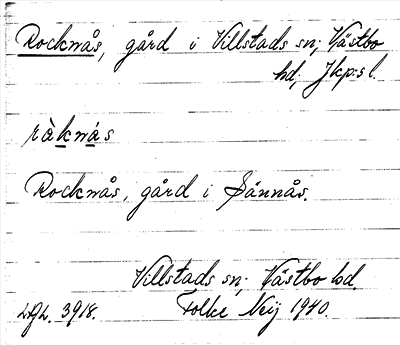 Rocknås, gård i Villstads sn; Västbo
hd; Jkp:s l.
ràknás
Rocknås, gård i Sännås.
Villstads sn; Västbo hd.
3918. Folke Neij 1940.